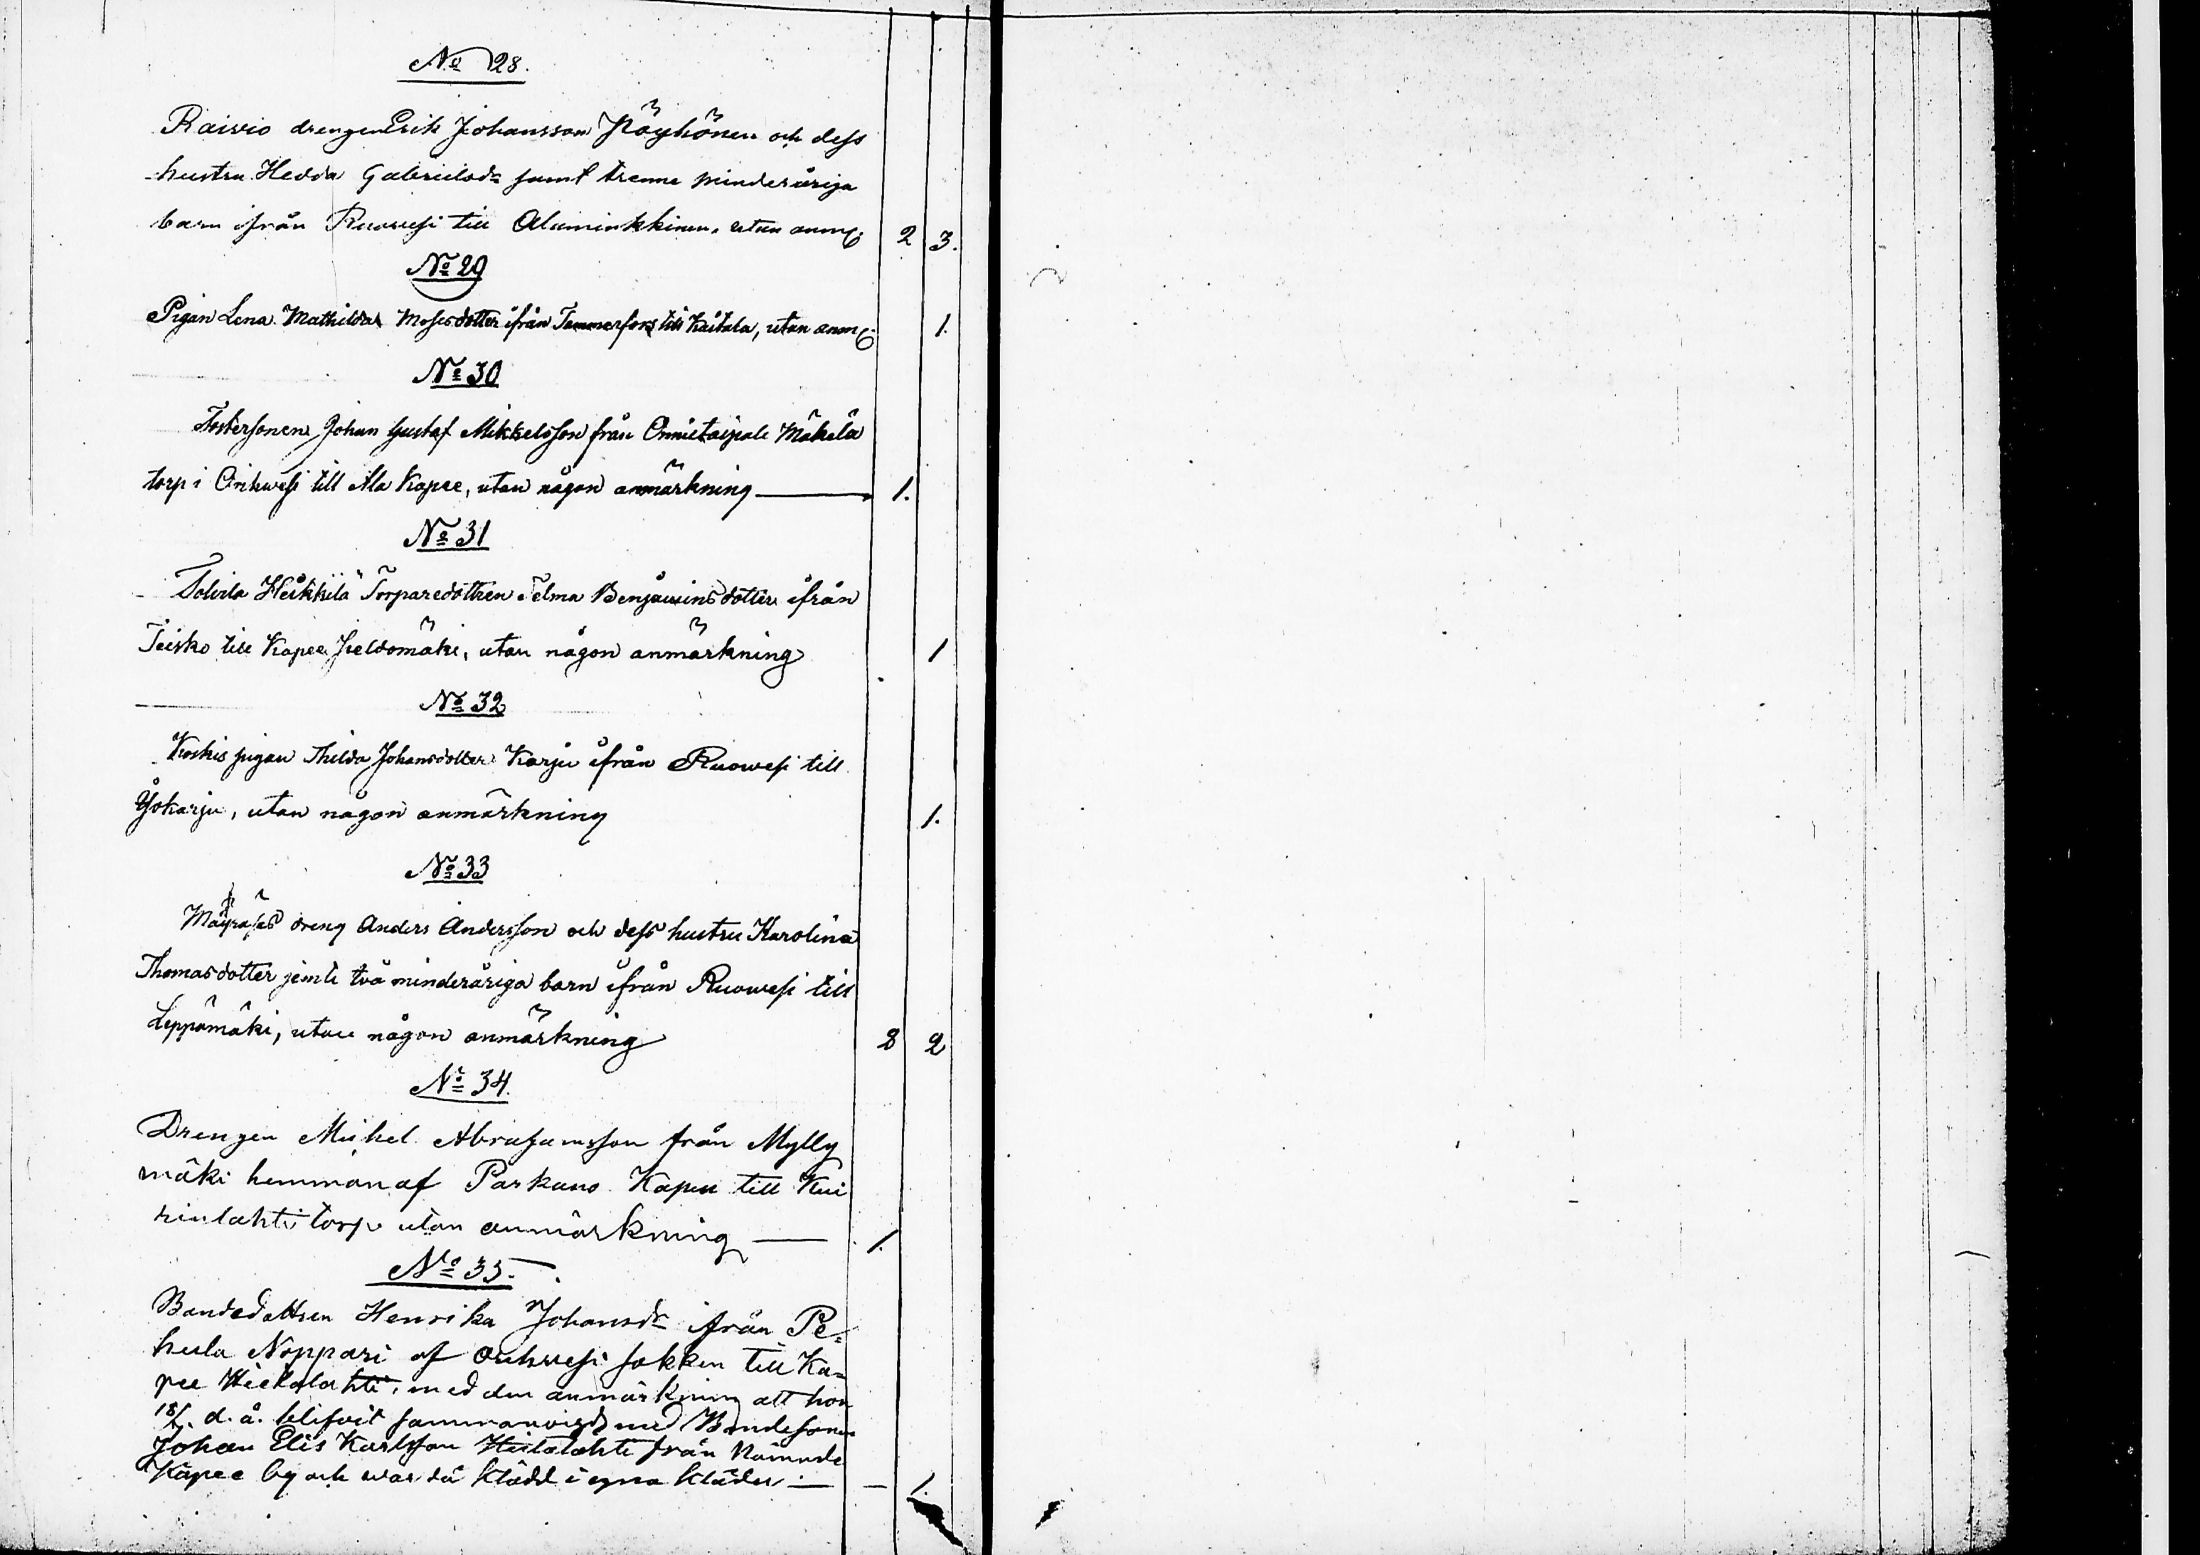 No 28.
Raivio drengen Erik Johansson Pöyhönen och dess
hustru Hedda Gabrielsdr samt trenne minderåriga
barn ifrån Ruowesi till Alaminkkinen, utan anm. 2 3.
No 29
Pigan Lena Mathilda Mosesdotter ifrån Tammerfors till Kaitala, utan anm. 1.
No 30
Fostersonen Johan Gustaf Mikkelsson från Onnistaipale Mäkelä
torp i Orihwesi till Ala Kapee, utan någon anmärkning 1.
No 31
Heikkilä Torparedottren Selma Benjaminsdotter ifrån
Teisko till Kapee, utan någon anmärkning 1
No 32
Koskis pigan Thilda Johansdotter Karju ifrån Ruowesi till
Yökarju, utan någon anmärkning 1.
No 33
dreng Anders Andersson och dess hustru Karolina
Thomasdotter jemte två minderåriga barn ifrån Ruowesi till
Leppämäki, utan någon anmärkning 2 2
No 34.
Drengen Mickel Abrahamsson från Mylly
mäki hemman af Parkano Kapell till Kui
rinlahti torp utan anmärkning 1.
No 35.
Bondedottren Henrika Johansdr ifrån Pe=
hula Noppari af Orihwesi sokken till Ka=
pee Hietalahti, med den anmärkning att hon
d. å. blifvit sammanvigd med Bondesonen
Johan Elis Karlsson Hietalahti från nämnde
Kapee by och war då klädd i egna kläder — 1.